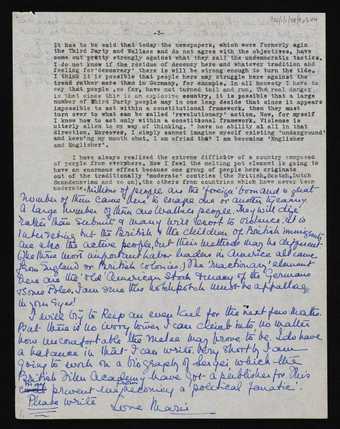 -3-
It has to be said that today the newspapers, which were formerly agin
the Third Party and Wallace and do not agree with the objectives, have
come out pretty strongly against what they call the undemocratic tactics.
I do not know if the residue of decency here and whatever tradition and
feeling for 'democracy' there is will be strong enough to turn the tide.
I think it is possible that people here may struggle here against the
trend rather more than in Germany, for example. In all honesty I have to
say that people so far, have not turned tail and run. The real danger
is that since this is an explosive country, it is possible that a large
number of Third Party people may in one leap decide that since it appears
impossible to act within a constitutional framework, then they must
turn over to what can be called 'revolutionary' action. Now, for myself
I know how to act only within a constitutional framework. Violence is
utterly alien to my way of thinking. I have no ability at all in that
direction. Moreover, I simply cannot imagine myself existing 'underground'
and keeping my mouth shut. I am afraid that I am becoming 'Englisher
and Englisher'.
I have always realised the extreme difficulty of a country composed
of people from everywhere. Now I feel the melting pot element is going to
have an enormous effect because one group of people here originate
out of the traditionally 'moderate' countries (the British, Dutch,
Scandanavians and so on), the others from countries which have never been
moderate. Millions of people are the foreign born and a great
number of them came 'here' to escape one or another tyranny
A large number of them are Wallace people. They will die
rather than submit & many will resort to violence. It is
interesting but the British & the children of British immigrants
are also the active people, but their methods may be different
(The three most important labor leaders in America all came
from England or British colonies.) The 'reactionary' element
here are the old American stock & many of the Germans
& some Poles. I am sure this hotchpotch must be appalling
in your eyes!
I will try to keep an even keel for the next few months.
But there is no ivory tower I can climb into no matter
how uncomfortable the melee may prove to be. I do have
a balance in that I can write. Very shortly I am
going to work on a biography of Serge, which the
British Film Academy have got a publisher for. This
may prevent me from becoming a 'political fanatic'.
Please write
Love Marie